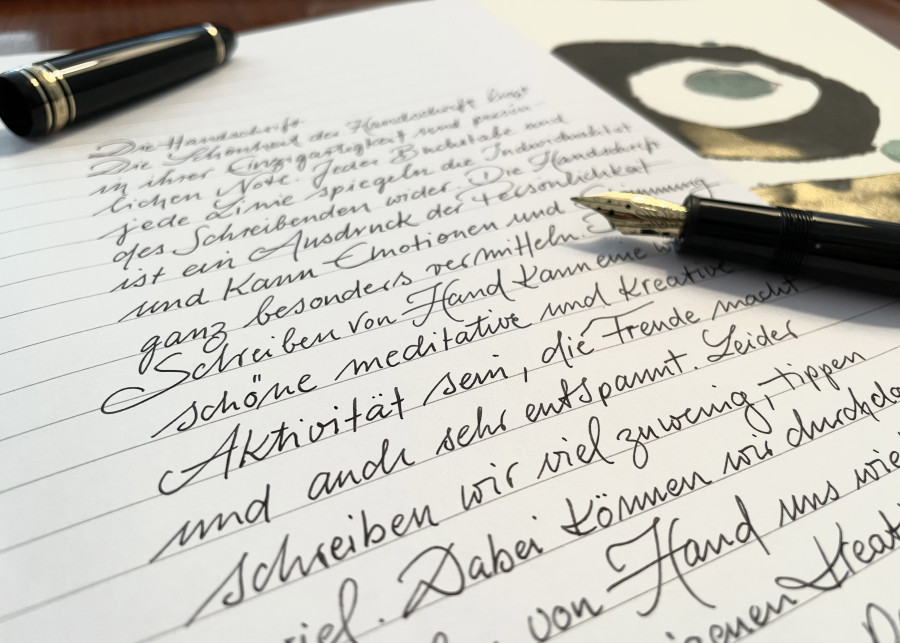 Die Handschrift
Die Schönheit der Handschrift liegt
in ihrer Einzigartigkeit und persön-
lichen Note. Jeder Buchstabe und
jede Linie spiegeln die Individualität
des Schreibenden wider. Die Handschrift
ist ein Ausdruck der Persönlichkeit
und kann Emotionen und Stimmung
ganz besonders vermitteln.
Schreiben von Hand kann eine
schöne meditative und kreative
Aktivität sein, die Freude macht
und auch sehr entspannt. Leider
schreiben wir viel zuwenig, tippen
viel. Dabei können wir
von Hand uns